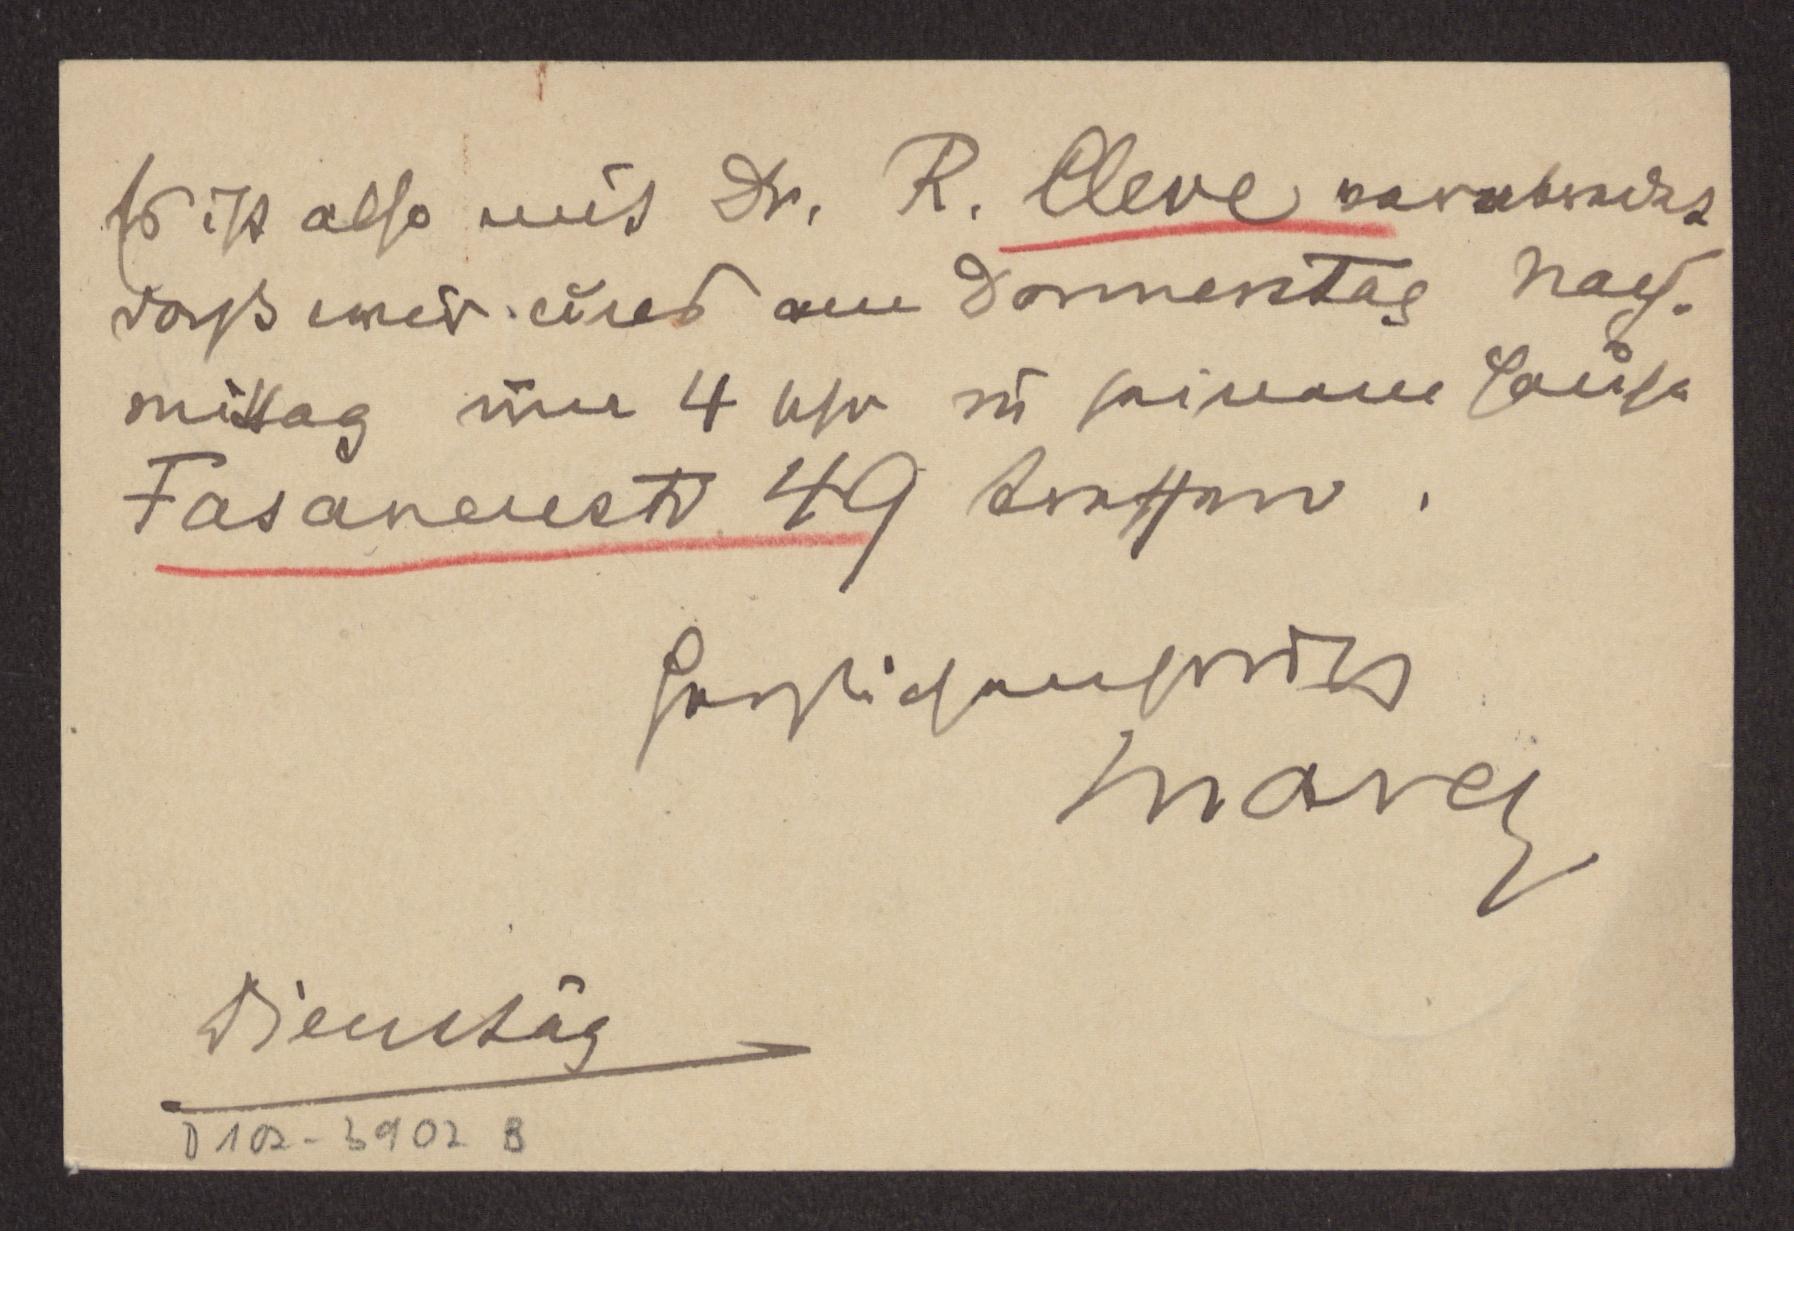 Es ist also mit Dr. R. Cleve verabredet
daß wir uns am Donnerstag Nach-
mittag um 4 Uhr in seinem Hause
Fasanenstr 49 treffen.
Herzlichen
Dienstag
D 102-3902 B